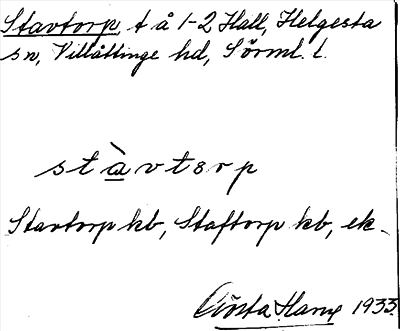 Stavtorp, t å 1-2 Hall, Helgesta
sn, Villåttinge hd, Sörml. l.
stàvtorp
Stavtorp kb, Staftorp kb, ek.
Gösta Hamp 1933.